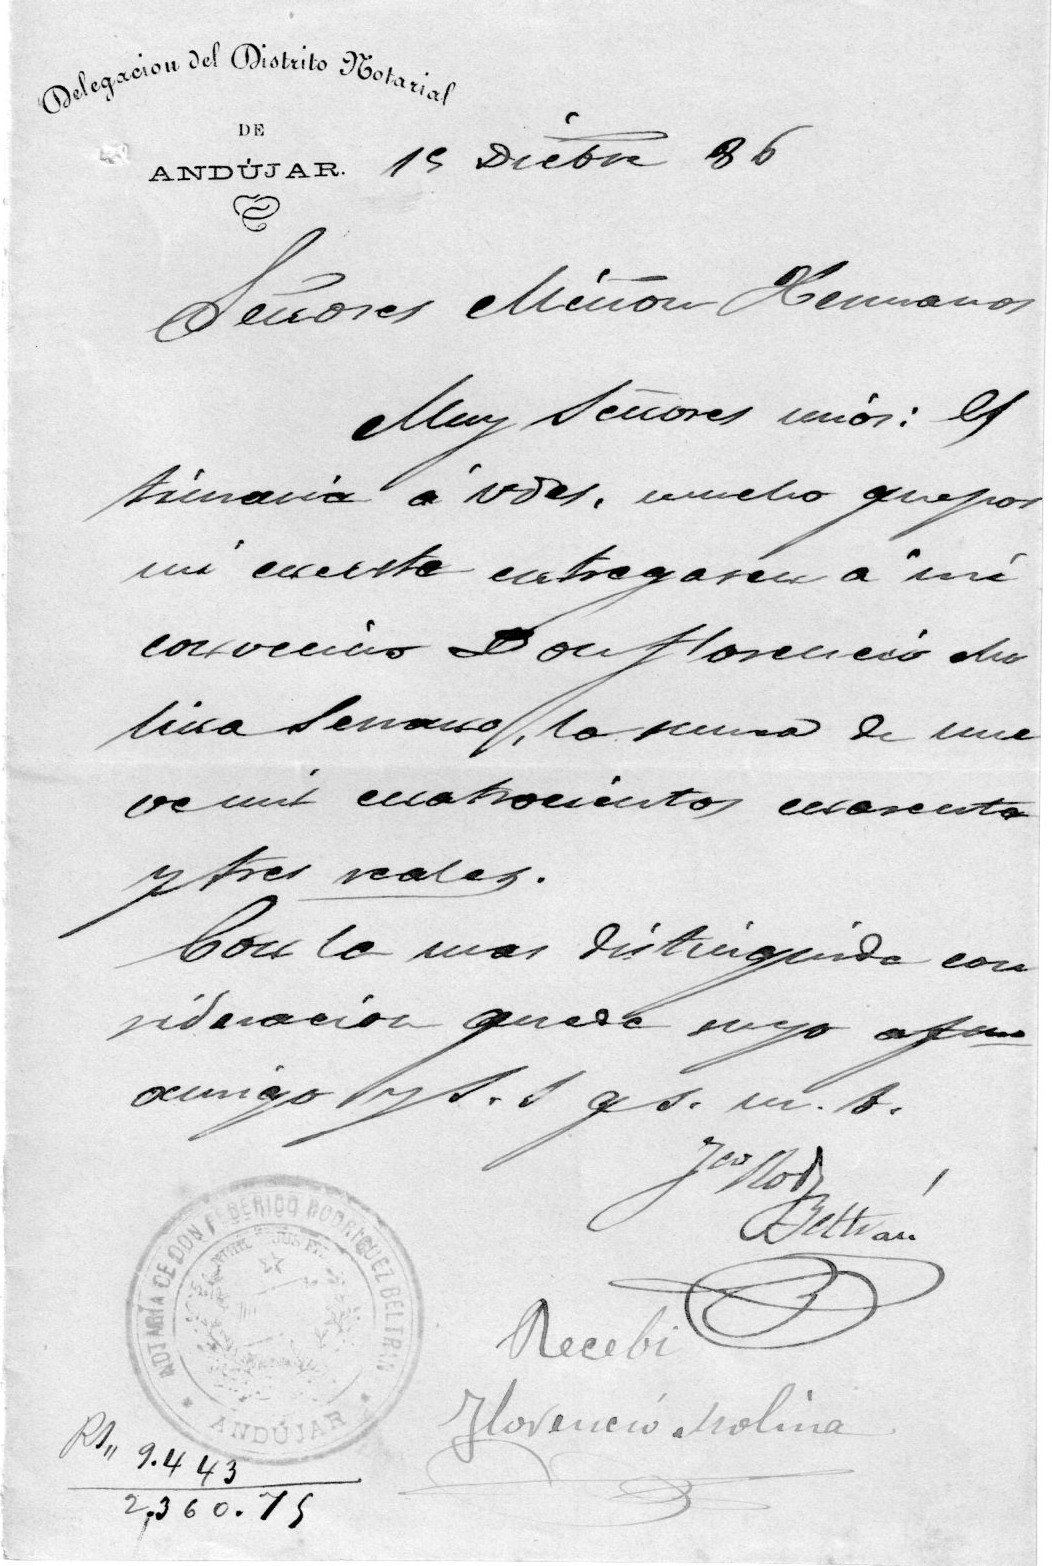 Delegacion del Distrito Notarial
DE
ANDÚJAR.
15 Dicbre 86
Señores Miñon Hermanos
Muy Señores mios: Es
timaria á Vdes. mucho que por
mi cuenta entregasen á mi
convecino Don Florencio Mo
lina Serrano, la suma de nue
ve mil cuatrocientos cuarenta
y tres reales.
Con la mas distinguida con
sideracion queda suyo afmo
amigo y S. S q s. m. b.
Rodz
Beltrán
NOTARIA DE DON FEDERICO RODRIGUEZ BELTRAN
* ANDÚJAR *
Recebi
Florencio Molina
Rs,, 9.443
2,360.75